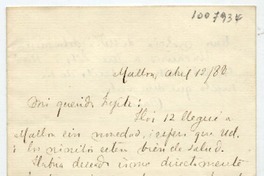 1007934
Malloa, abril 12/80
Mi querida Lupita:
Hoi 12 llegué a
Malloa sin novedad, i espero que Ud.
i los niñitos estén bien de salud.
Habia deseado irme directamente